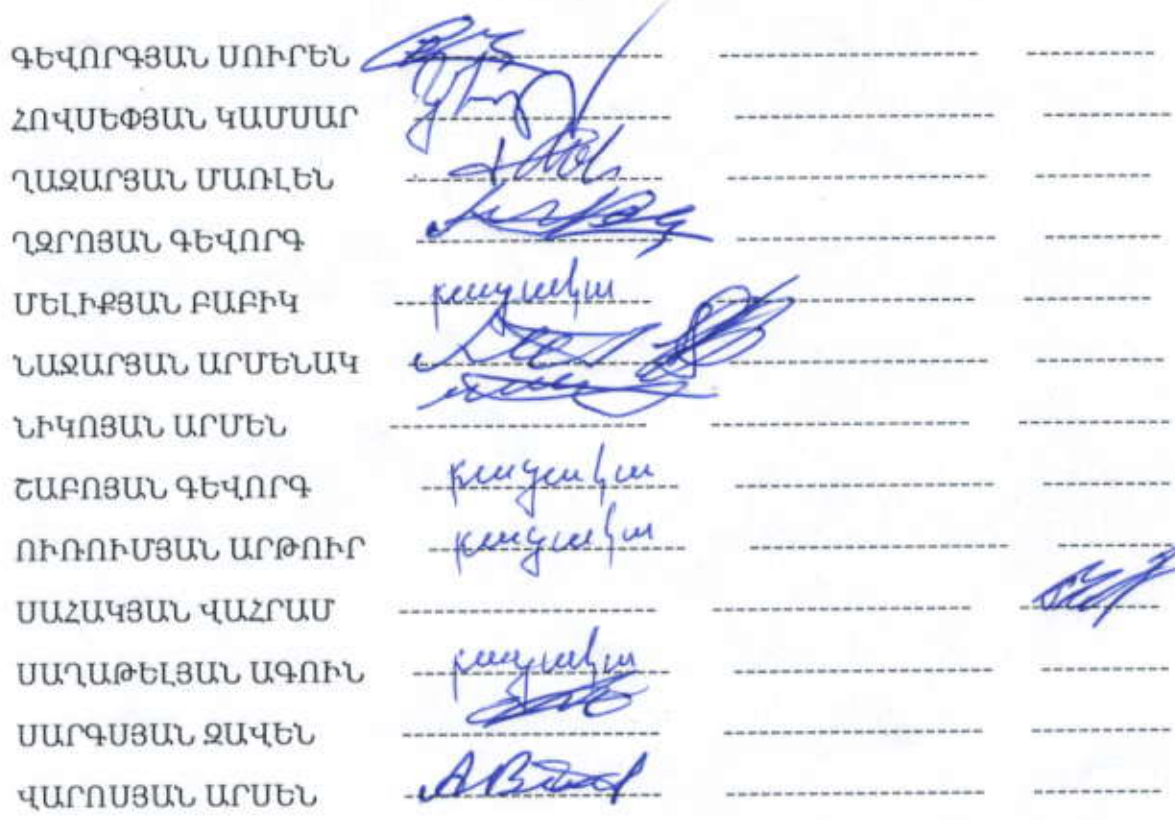 ԳԵՎՈՐԳՅԱՆ ՍՈՒՐԵՆ
ՀՈՎՍԵՓՅԱՆ ԿԱՄՍԱՐ
ՂԱԶԱՐՅԱՆ ՄԱՌԼԵՆ
ՂԶՐՈՅԱՆ ԳԵՎՈՐԳ
ՄԵԼԻՔՅԱՆ ԲԱԲԻԿ բացակա
ՆԱԶԱՐՅԱՆ ԱՐՄԵՆԱԿ
ՆԻԿՈՅԱՆ ԱՐՄԵՆ
ՇԱԲՈՅԱՆ ԳԵՎՈՐԳ բացակա
ՈՒՌՈՒՄՅԱՆ ԱՐԹՈՒՐ բացակա
ՍԱՀԱԿՅԱՆ ՎԱՀՐԱՄ
ՍԱՂԱԹԵԼՅԱՆ ԱԳՈՒՆ բացակա
ՍԱՐԳՍՅԱՆ ԶԱՎԵՆ
ՎԱՐՈՍՅԱՆ ԱՐՍԵՆ